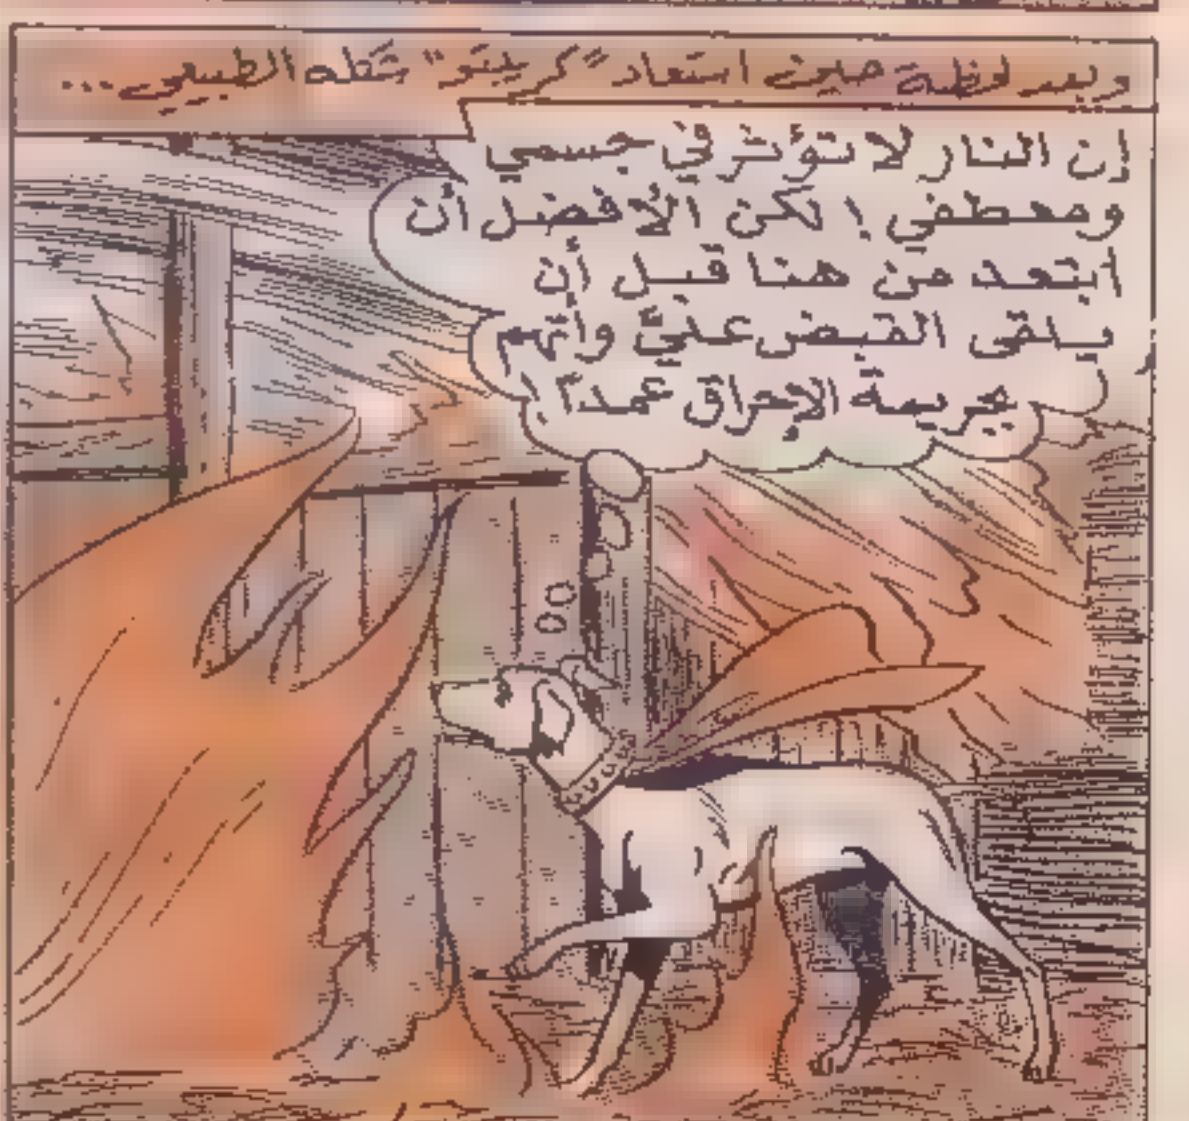 وبعد لحظة حين استعاد "كريبتو" شكله الطبيعي...
إن النار لا تؤثر في جسمي
ومعطفي ! لكن الأفضل أن
ابتعد من هنا قبل أن
يلقى القبض عليَّ وأتهم
بجريمة الإحراق عمداً !